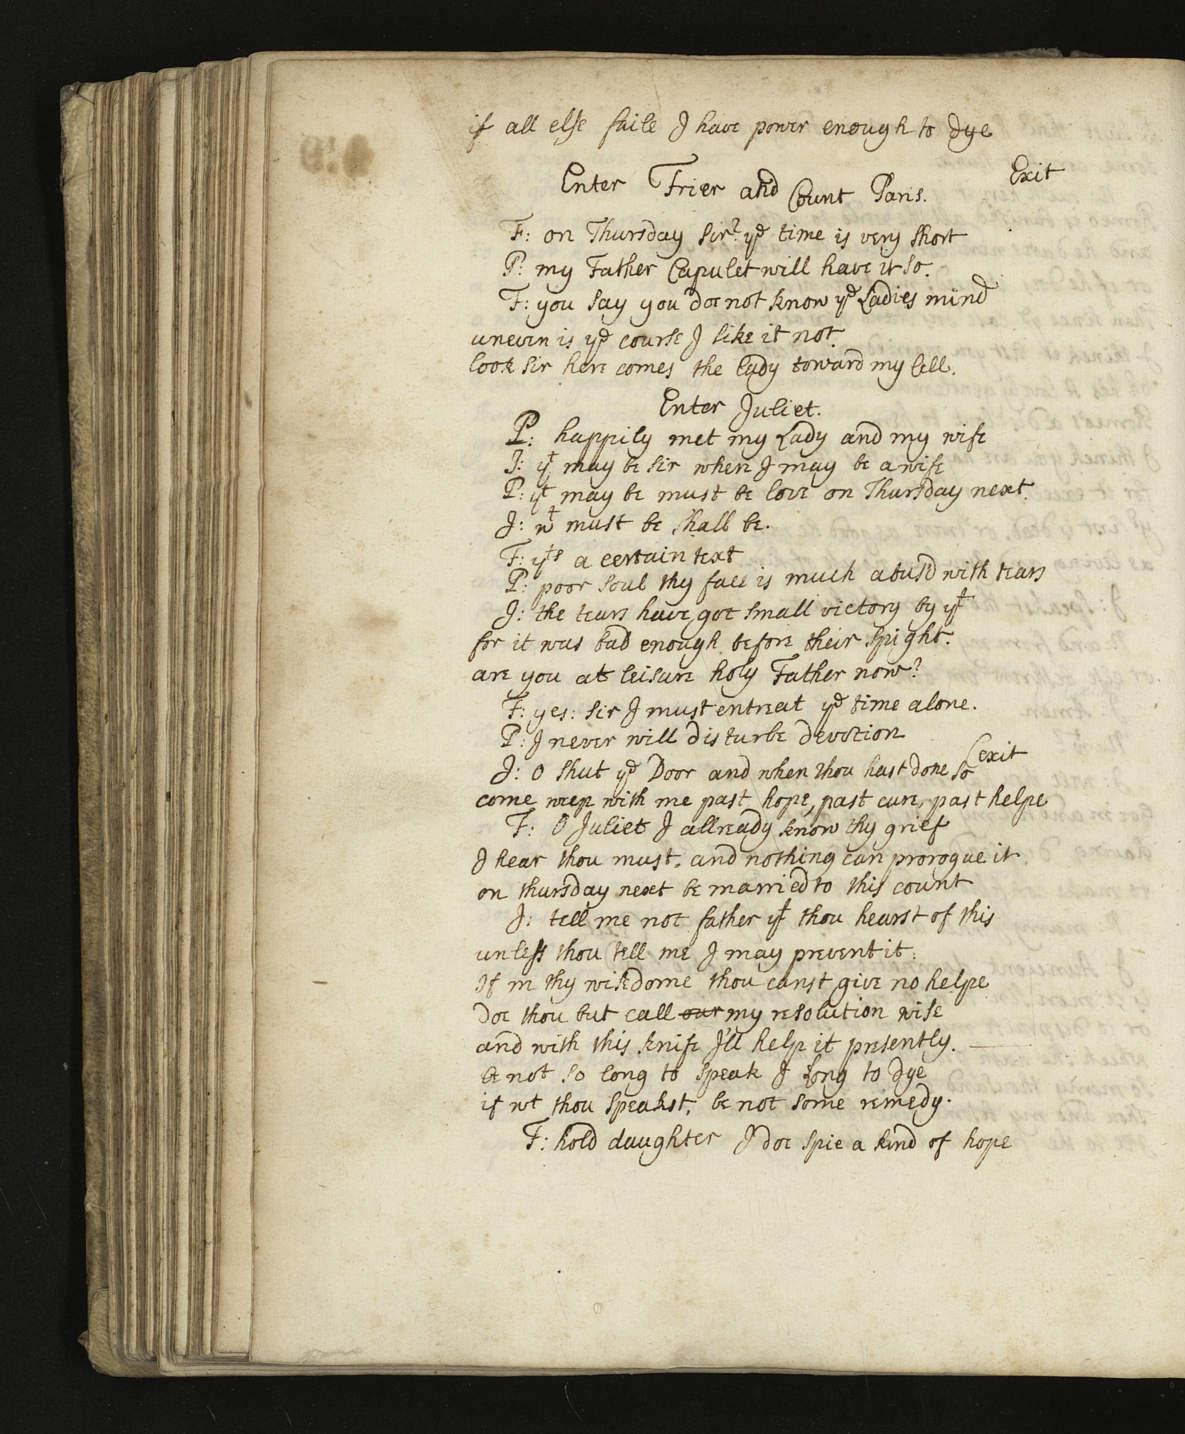 if all else faile I have power enough to dye
Exit
Enter Frier and Count Paris.
F: on Thursday Sir? ye time is very short
P: my Father Capulet will have it so.
F: you say you doe not know ye Ladies mind
uneven is ye course I like it not.
look sir here comes the lady toward my Cell.
Enter Juliet.
P: happily met my Lady and my wife
J: yt may be sir when I may be a wife
P: yt may be must be love on Thursday next.
J: wt must be shall be.
F: yts a certain text
P: poor soul thy face is much abusd with tears
J: the tears have got small victory by yt
for it was bad enough before their spight.
are you at leisure holy Father now?
F: yes: sir I must entreat ye time alone.
P: I never will disturbe devotion
(exit
J: O shut ye Door and when thou hast done so
come weep with me past hope, past cure, past helpe
F: O Juliet I allready know thy grief
I hear thou must, and nothing can prorogue it
on thursday next be married to this count
J: tell me not father yt thou hearst of this
unless thou tell me I may prevent it.
If in thy wisdome thou canst give no helpe
doe thou but call our my resolution wise
and with this knife I'll help it presently.
be not so long to speak I long to dye
if wt thou speakst, be not some remedy.
F: hold daughter I doe spie a kind of hope